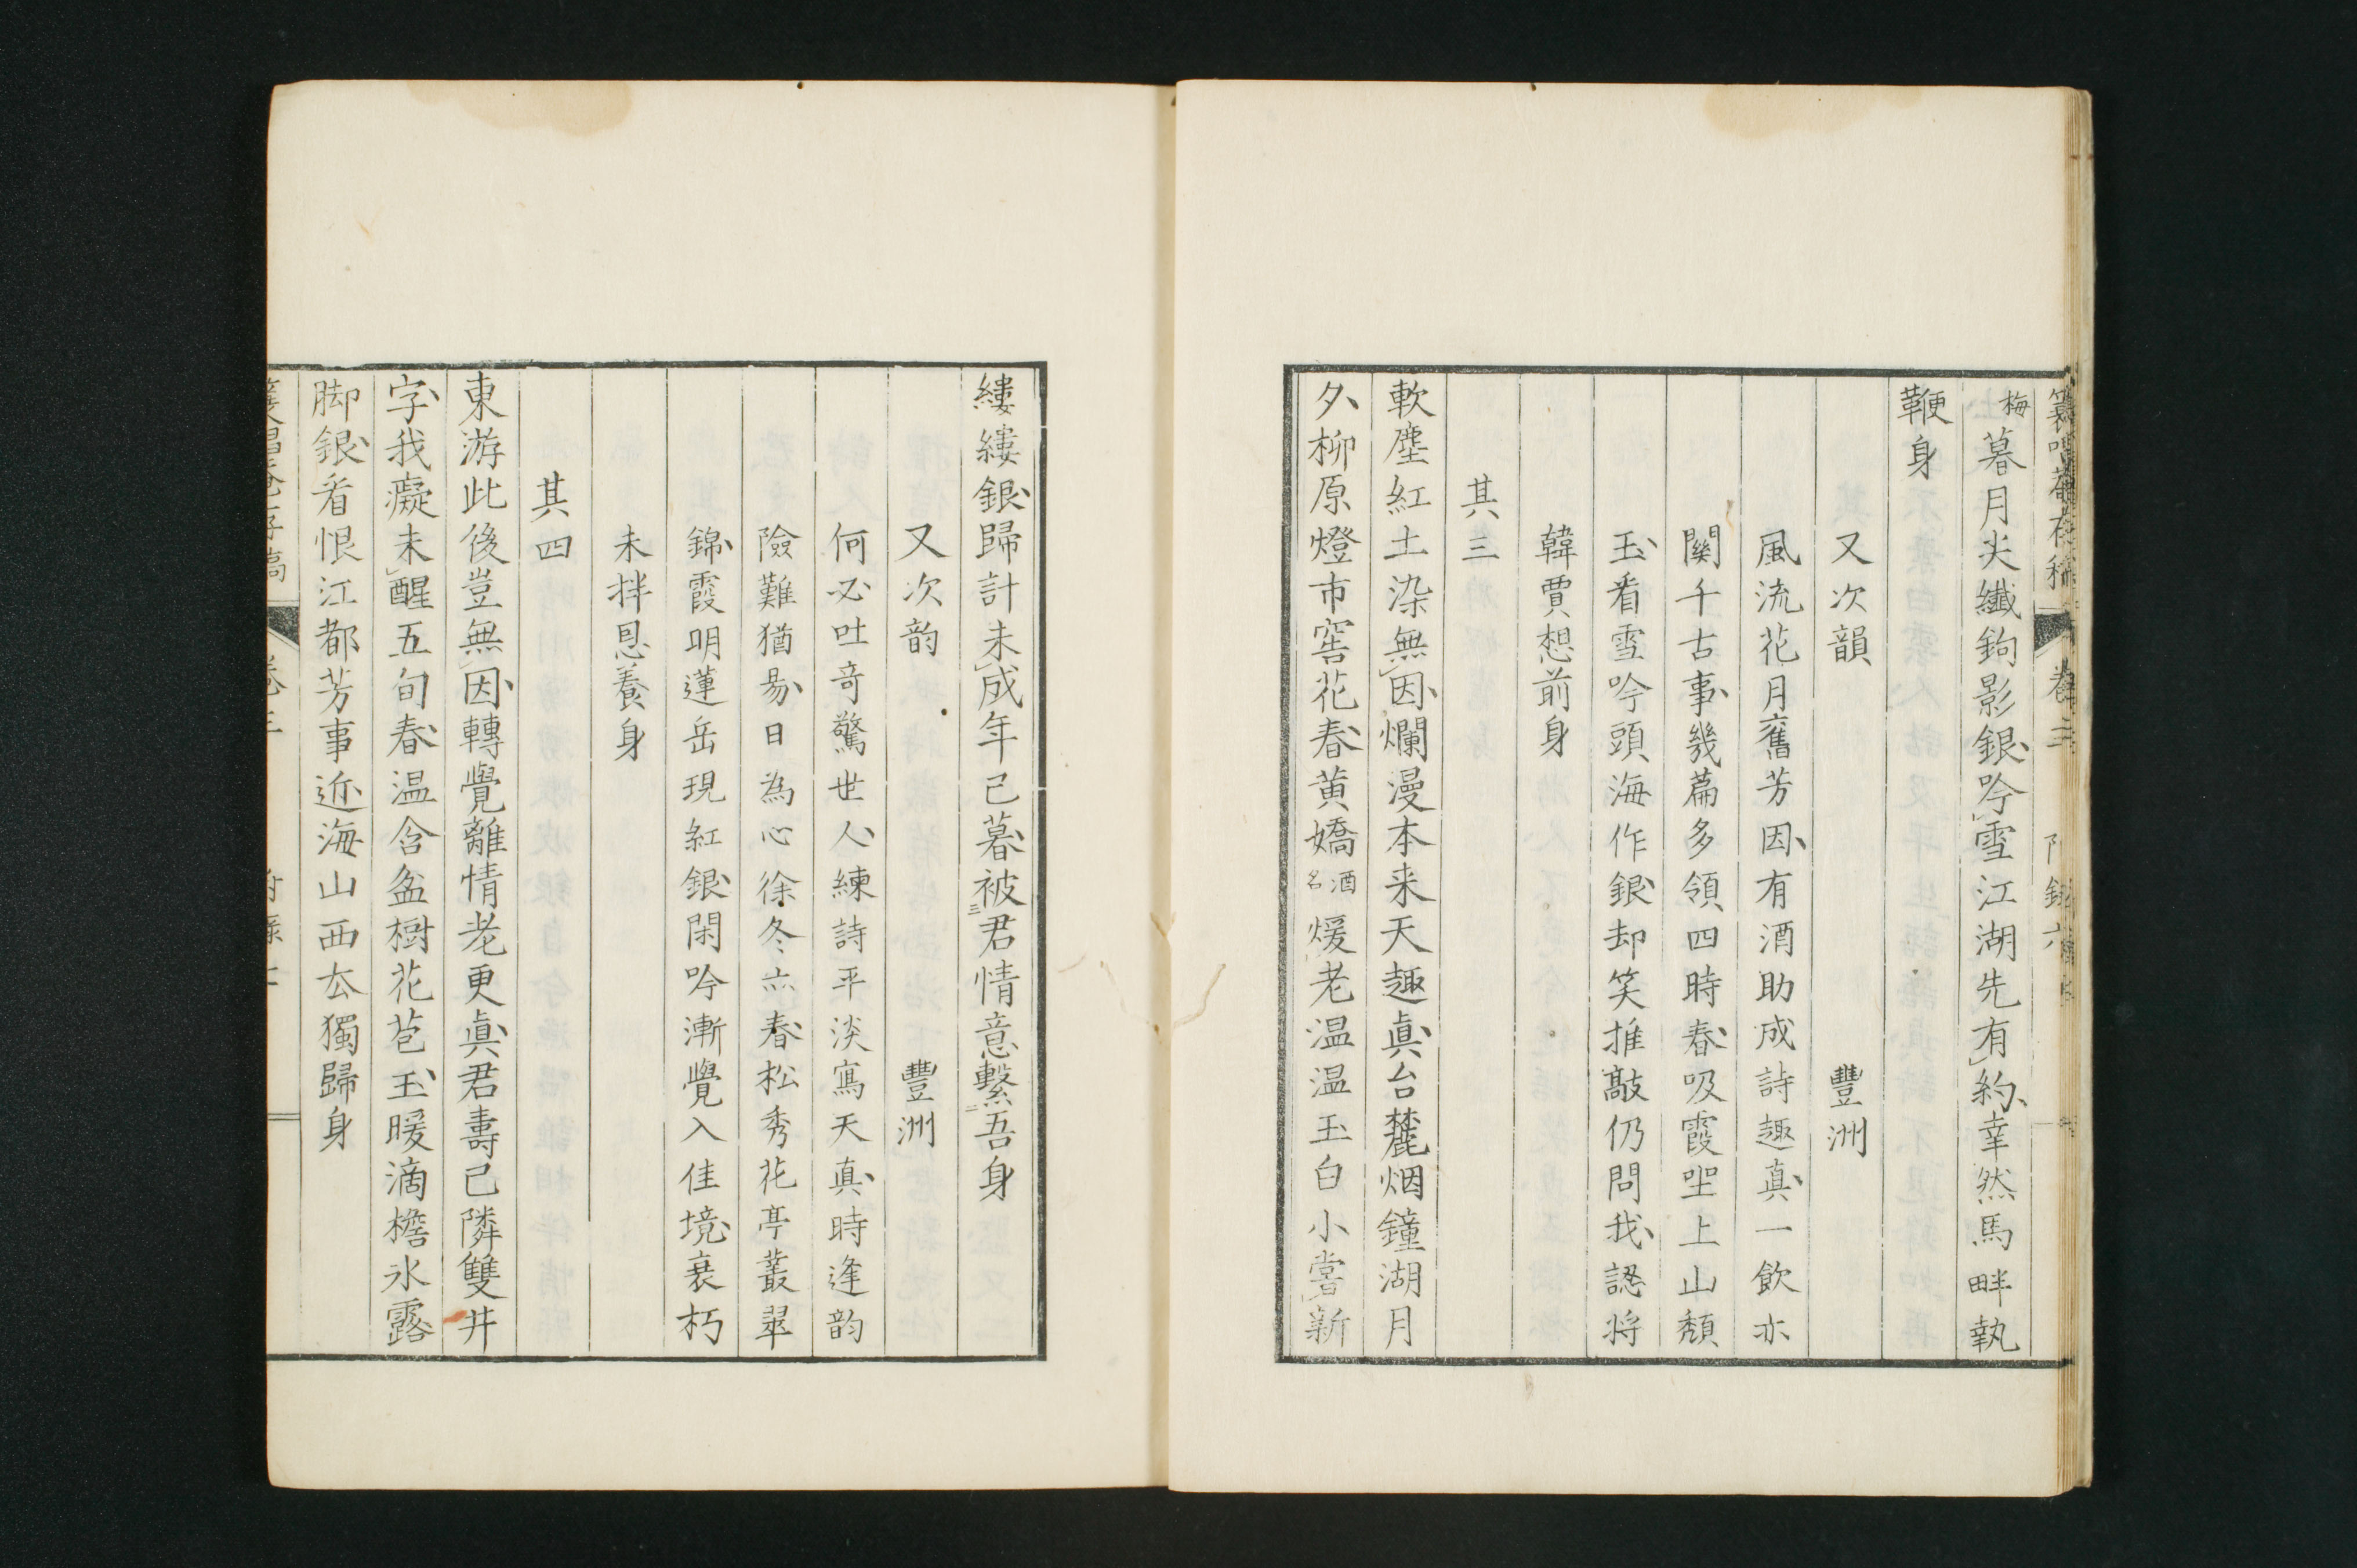 梅暮月尖纖鉤影銀吟雪江湖先有約幸然馬畔執
鞭身
又次韻 豐洲
風流花月舊芳因有酒助成詩趣真一飲亦
關千古事幾篇多領四時春吸霞坐上山頽
玉看雪吟頭海作銀却笑推敲仍問我認将
韓賈想前身
其三
軟塵紅土染無因爛漫本来天趣眞台麓烟鐘湖月
夕柳原燈市窖花春黄嬌酒名煖老温温玉白小嘗新
縷縷銀歸計未成年已暮被君情意繫吾身
又次韵 豐洲
何必吐奇驚世人練詩平淡寫天真時逢韵
險難猶易日為心徐冬亦春松秀花亭叢翠
錦霞明蓮岳現紅銀閑吟漸覺入佳境衰朽
未拌恩養身
其四
東游此後豈無因轉覺離情老更眞君壽已隣雙廾
字我癡未醒五旬春温含盆樹花苞玉暖滴檐氷露
脚銀看恨江都芳事近海山西去獨歸身